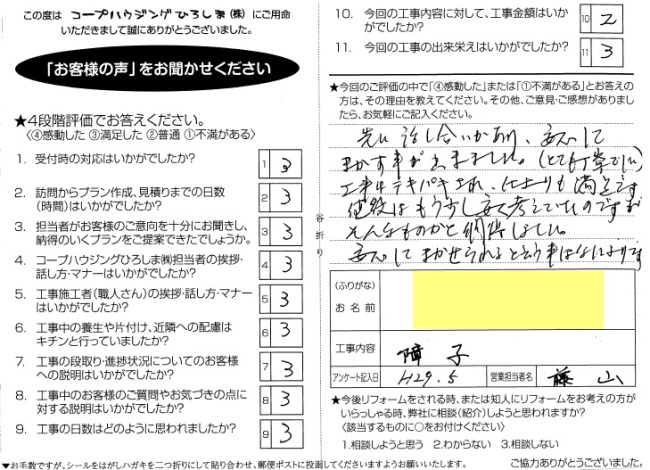 この度は コープハウジングひろしま(株) にご用命
いただきまして誠にありがとうございました。
「お客様の声」をお聞かせください
★4段階評価でお答えください。
〈④感動した ③満足した ②普通 ①不満がある〉
1. 受付時の対応はいかがでしたか?
1 3
2. 訪問からプラン作成、見積りまでの日数
(時間)はいかがでしたか?
2 3
3. 担当者がお客様のご意向を十分にお聞きし、
納得のいくプランをご提案できたでしょうか。
3 3
4. コープハウジングひろしま㈱担当者の挨拶・
話し方・マナーはいかがでしたか?
4 3
5. 工事施工者(職人さん)の挨拶・話し方・マナー
はいかがでしたか?
5 3
6. 工事中の養生や片付け、近隣への配慮は
キチンと行っていましたか?
6 3
7. 工事の段取り・進捗状況についてのお客様
への説明はいかがでしたか?
7 3
8. 工事中のお客様のご質問やお気づきの点に
対する説明はいかがでしたか?
8 3
9. 工事の日数はどのように思われましたか?
9 3
谷折り
10. 今回の工事内容に対して、工事金額はいか
がでしたか?
10 2
11. 今回の工事の出来栄えはいかがでしたか?
11 3
★今回のご評価の中で「④感動した」または「①不満がある」とお答えの
方は、その理由を教えてください。その他、ご意見・ご感想がありまし
たら、お気軽にご記入ください。
先に話し合いがあり、安心して
まかす事が出来ました。(とても丁寧でした)
工事はテキパキされ、仕上りも満足です
値段はもう少し安く考えていたのですが
そんなものかと納得しました。
安心してまかせられるという事はなによりです
(ふりがな)
お名前
工事内容 障子
アンケート記入日 H29.5 営業担当者名 藤山
★今後リフォームをされる時、または知人にリフォームをお考えの方が
いらっしゃる時、弊社に相談(紹介)しようと思われますか?
〈該当するものに○をお付けください〉
1.相談しようと思う 2.わからない 3.相談しない
▼お手数ですが、シールをはがしハガキを二つ折りにして貼り合わせ、郵便ポストに投函してくださいますようお願いいたします。 ご協力ありがとうございました。